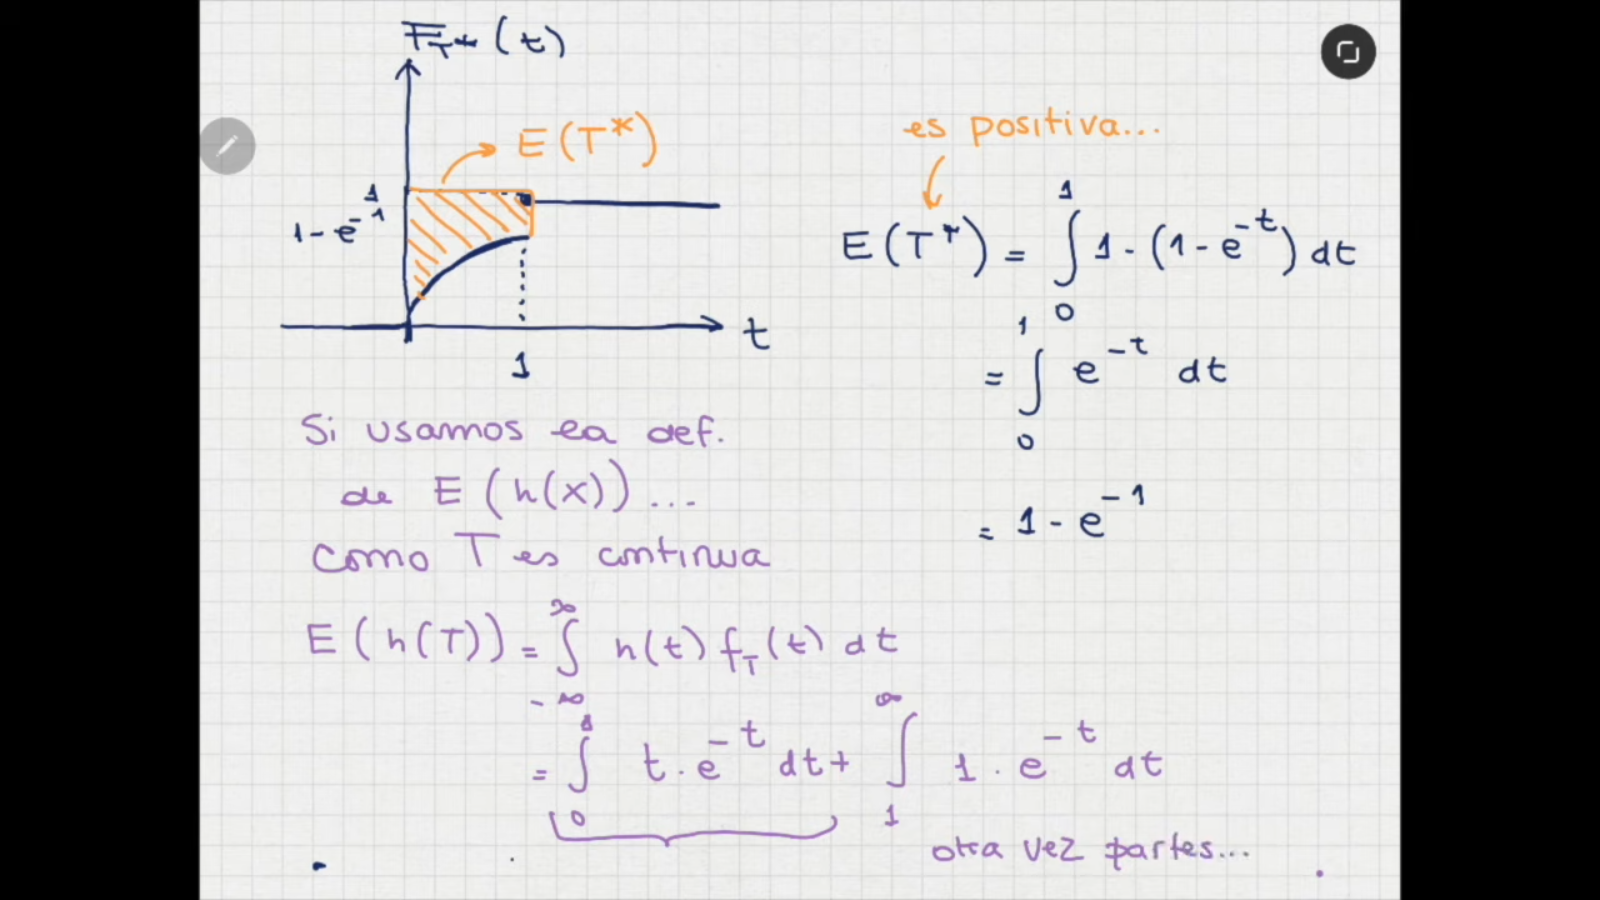 F_T*(t)
E(T*)
1
1 - e^-1
t
1
es positiva...
E(T*) = ∫_0^1 1 - (1 - e^-t) dt
= ∫_0^1 e^-t dt
= 1 - e^-1
Si usamos la def.
de E(h(x))...
Como T es continua
E(h(T)) = ∫_-∞^∞ h(t) f_T(t) dt
= ∫_0^1 t · e^-t dt + ∫_1^∞ 1 · e^-t dt
otra vez partes...